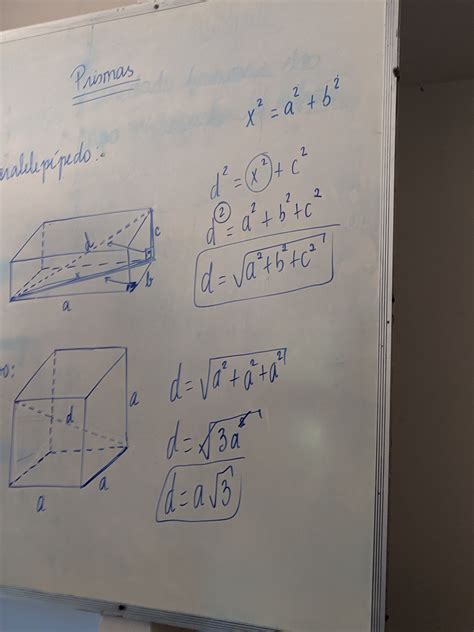 Prismas
x² = a² + b²
ralelepípedo:
d² = x² + c²
d² = a² + b² + c²
d = √a² + b² + c²
d
c
x
b
a
o:
d = √a² + a² + a²
a
d
d = √3a²
a
a
d = a√3